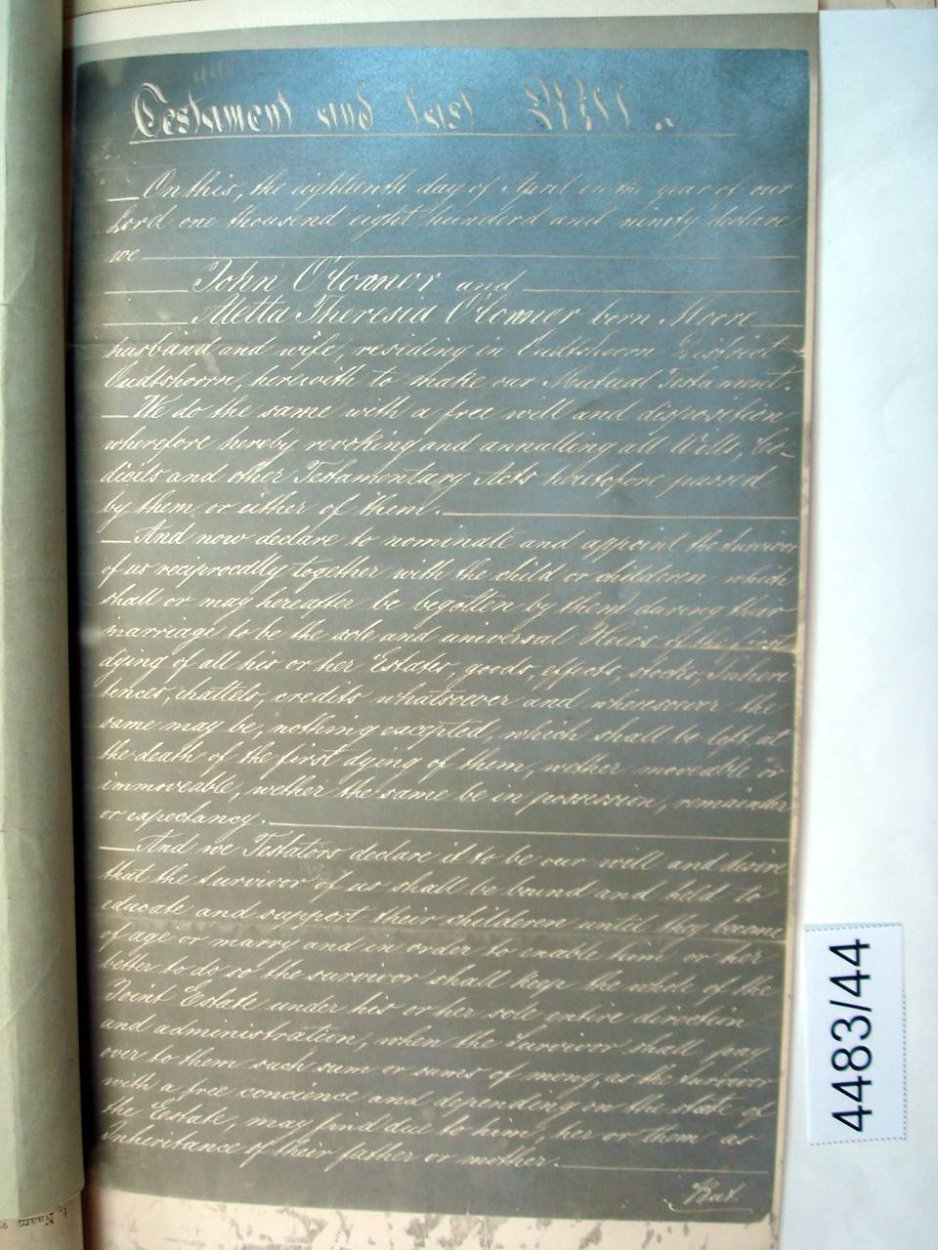 Testament and last Will.
On this, the eighteenth day of April in the year of our
Lord one thousand eight hunderd and ninety declare
we
John O'Connor and
Metta Theresia O'Connor born Moore
husband and wife, residing in Oudtshoorn District
Oudtshoorn, herewith to make our Mutual Testament.
We do the same with a free will and disposition
wherefore hereby revoking and annulling all Wills, Co-
dicils and other Testamentary Acts heretofore passed
by them or either of them.
And now declare to nominate and appoint the Survivor
of us reciprocally together with the child or childeren which
shall or may hereafter be begotten by them during their
marriage to be the sole and universal Heirs of the first
dying of all his or her Estates, goods, effects, stocks, Inheri
tences, chattels, credits whatsoever and wheresoever the
same may be, nothing excepted, which shall be left at
the death of the first dying of them, wether moveable or
immoveable, wether the same be in possession, remainder
or expectancy.
And we Testators declare it to be our will and desire
that the survivor of us shall be bound and held to
educate and support their childeren until they become
of age or marry and in order to enable him or her
better to do so the survivor shall keep the whole of the
Joint Estate under his or her sole entire direction
and administration, when the Survivor shall pay
over to them such sum or sums of mony, as the Survivor
with a free concience and depending on the state of
the Estate, may find due to him, her or them as
Inheritance of their father or mother.
But.
4483/44